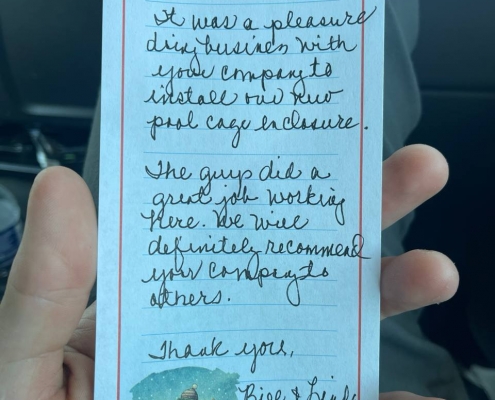 It was a pleasure
doing business with
your company to
install our new
pool cage enclosure.
The guys did a
great job working
here. We will
definitely recommend
your company to
others.
Thank you,
Bill &